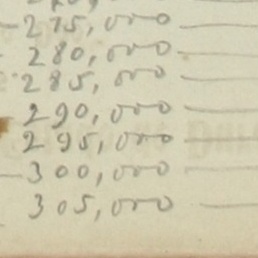 275,000
280,000
285,000
290,000
295,000
300,000
305,000